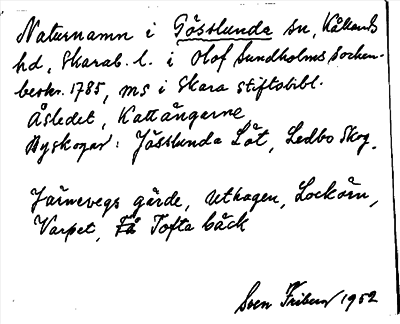 Naturnamn i Gösslunda sn, Kållands
hd, Skarab. l. i Olof Sundholms socken-
beskr. 1785, ms i Skara stiftsbibl.
Åsledet, Kattångarne,
Byskogar: Jösslunda Löt, Ledbo Skog.
Järnevegs gärde, Uthagen, Lockörn,
Varpet, Få Tofta bäck
Sven Friberg 1952